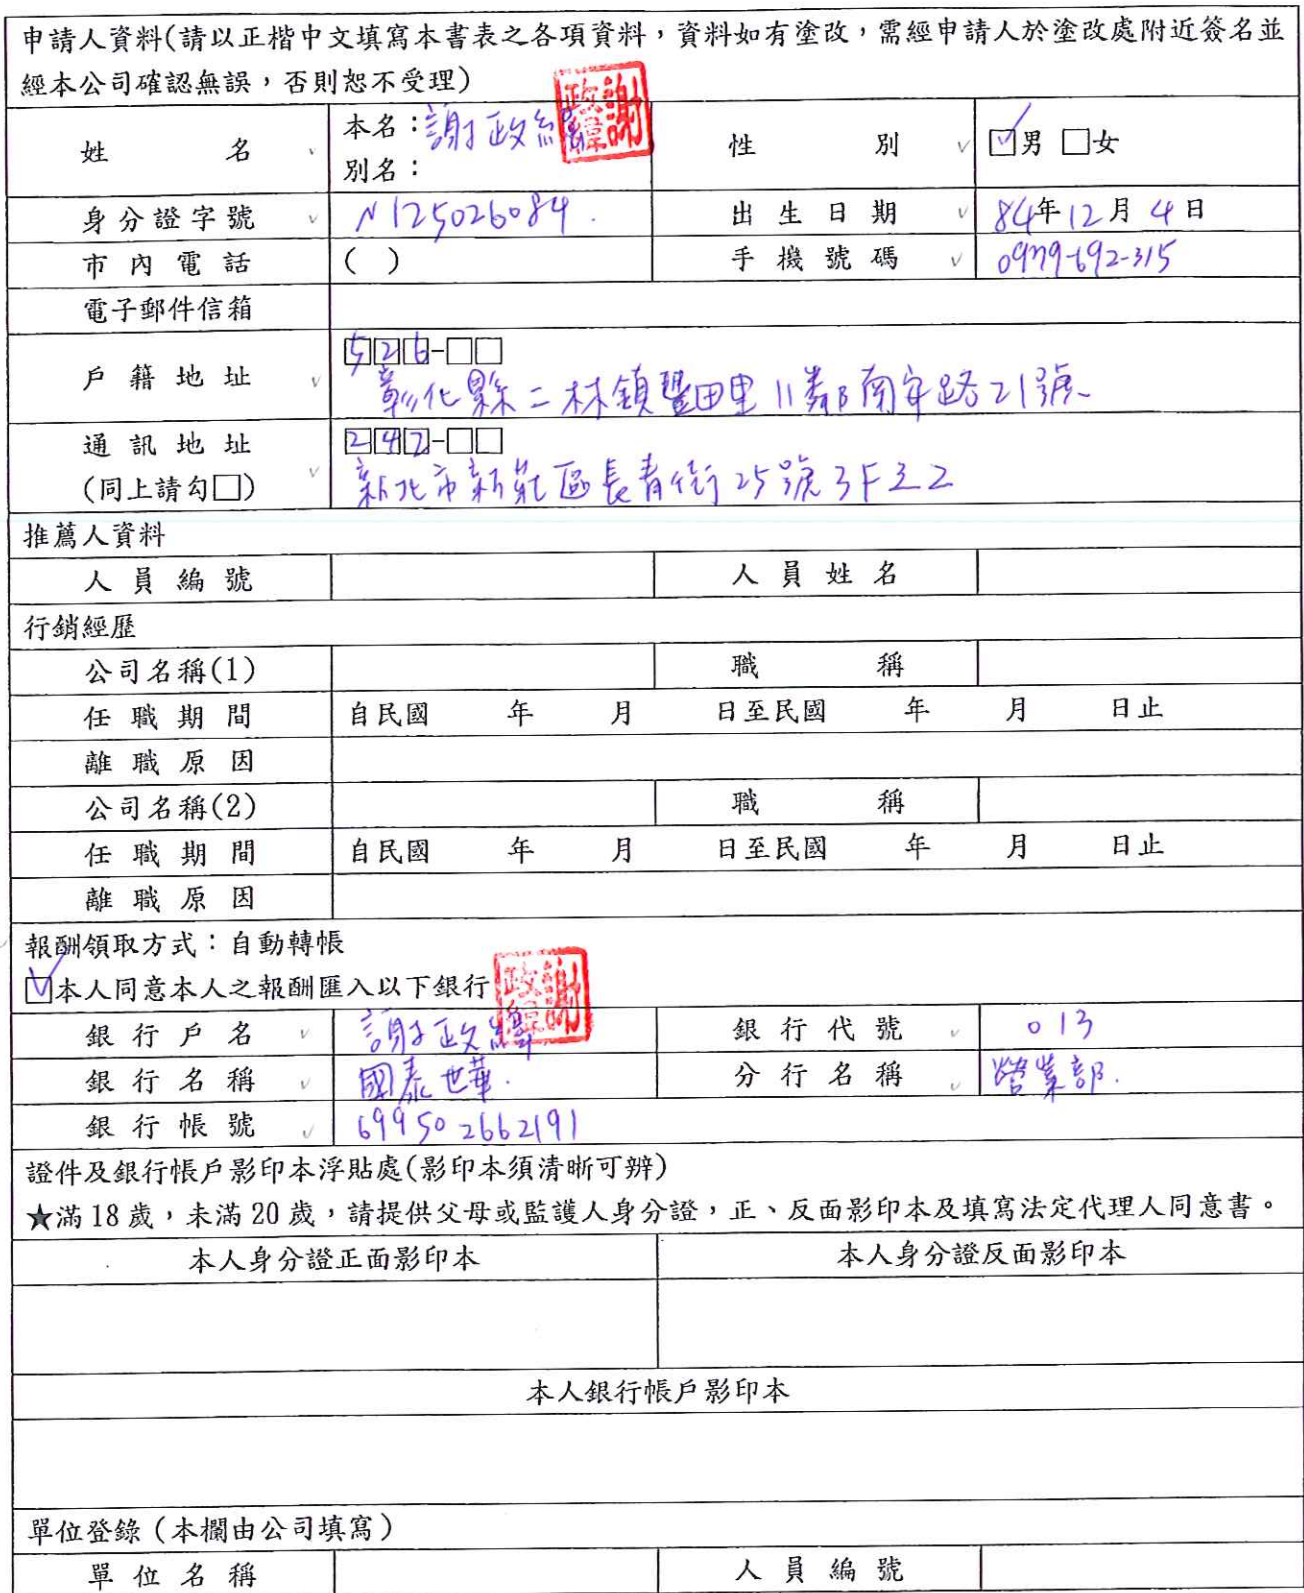 申請人資料(請以正楷中文填寫本書表之各項資料，資料如有塗改，需經申請人於塗改處附近簽名並
經本公司確認無誤，否則恕不受理)
姓名 本名：謝政緯 性別 ☑男 □女
別名：
謝政緯
身分證字號 N125026084. 出生日期 84年12月4日
市內電話 ( ) 手機號碼 0979-692-315
電子郵件信箱
戶籍地址 526-□□
彰化縣二林鎮豐田里11鄰南安路21號
通訊地址 242-□□
(同上請勾□) 新北市新莊區長青街25號3F之2
推薦人資料
人員編號 人員姓名
行銷經歷
公司名稱(1) 職稱
任職期間 自民國 年 月 日至民國 年 月 日止
離職原因
公司名稱(2) 職稱
任職期間 自民國 年 月 日至民國 年 月 日止
離職原因
報酬領取方式：自動轉帳
☑本人同意本人之報酬匯入以下銀行
謝政緯
銀行戶名 謝政緯 銀行代號 013
銀行名稱 國泰世華. 分行名稱 營業部.
銀行帳號 699502662191
證件及銀行帳戶影印本浮貼處(影印本須清晰可辨)
★滿18歲，未滿20歲，請提供父母或監護人身分證，正、反面影印本及填寫法定代理人同意書。
本人身分證正面影印本 本人身分證反面影印本
本人銀行帳戶影印本
單位登錄（本欄由公司填寫）
單位名稱 人員編號